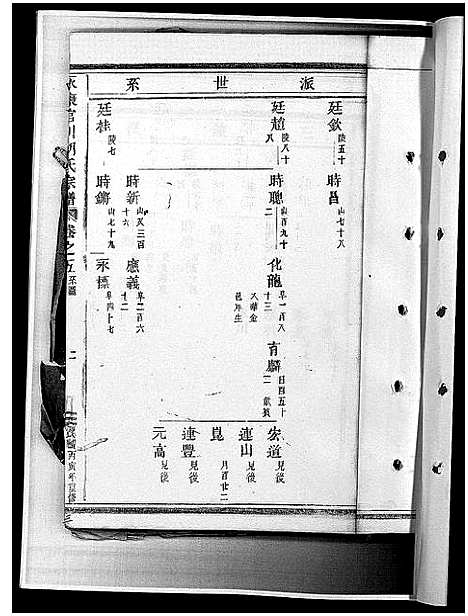 派世系
廷欽 陵五十
時昌 山七十八
廷趙 陵八十八
時聰 山百九十二
化龍 阜一百八十三 入華金邑庠生
有麟 日四五十二
宏道 見後
連山 見後
崑 月百廿二
連豐 見後
元高 見後
時新 山又三百十六
應義 阜二百六十二
廷桂 陵七
時鏘 山七十九
永標 阜四十七
永康官川胡氏宗譜
卷之五 系圖
二
民國丙寅年重修